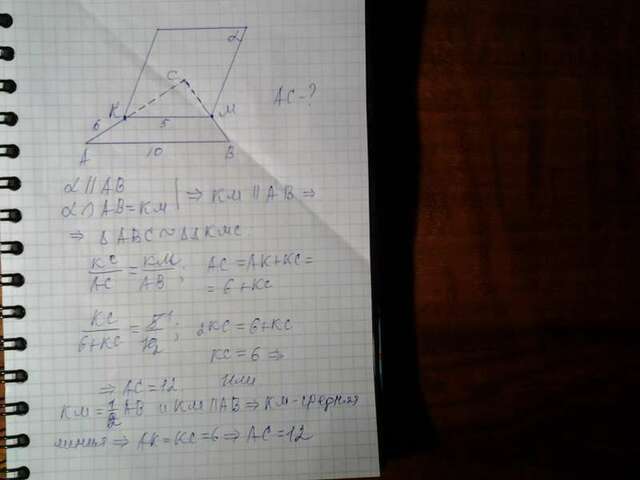 α
C
K
M
AC-?
6
5
A
10
B
α || AB
α ∩ AB = KM | ⇒ KM || AB ⇒
⇒ Δ ABC ~ Δ KMC.
KC/AC = KM/AB ; AC = AK + KC =
= 6 + KC
KC/(6+KC) = 5¹/10₂ ; 2KC = 6 + KC
KC = 6 ⇒
⇒ AC = 12 или
KM = 1/2 AB и KM || AB ⇒ KM - средняя
линия ⇒ AK = KC = 6 ⇒ AC = 12